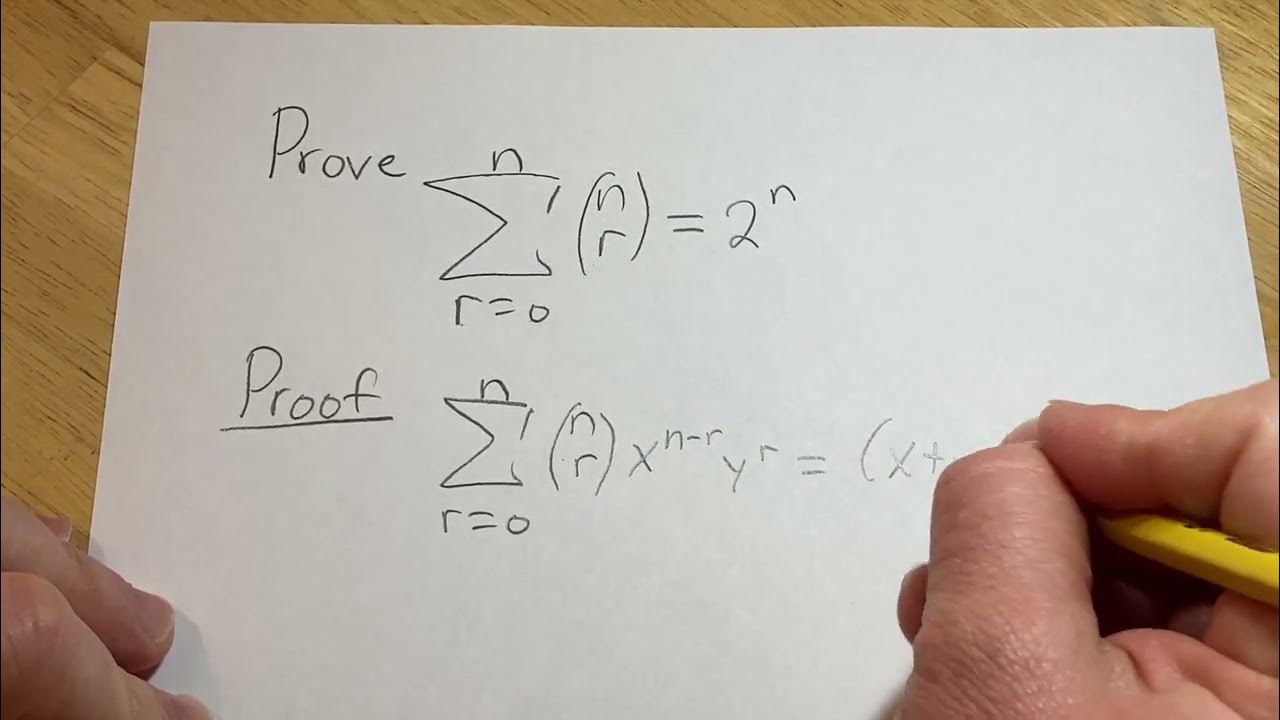 Prove \sum_{r=0}^{n} \binom{n}{r} = 2^n
Proof \sum_{r=0}^{n} \binom{n}{r} x^{n-r} y^r = (x+